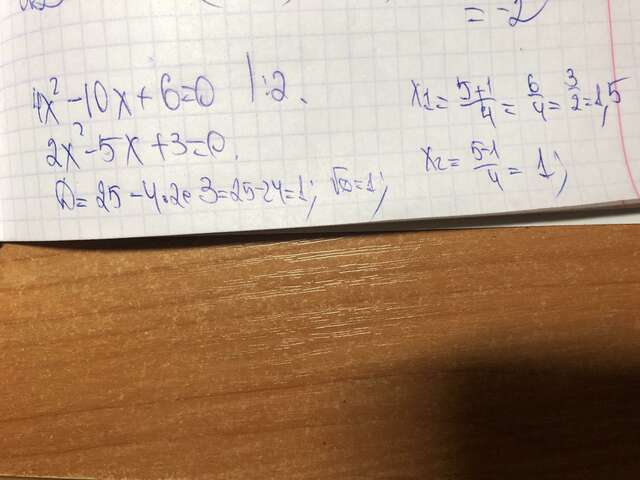 = -2
4x² - 10x + 6 = 0 | :2.
2x² - 5x + 3 = 0.
D = 25 - 4·2·3 = 25 - 24 = 1; √D = 1;
x1 = 5+1/4 = 6/4 = 3/2 = 1,5
x2 = 5-1/4 = 1;